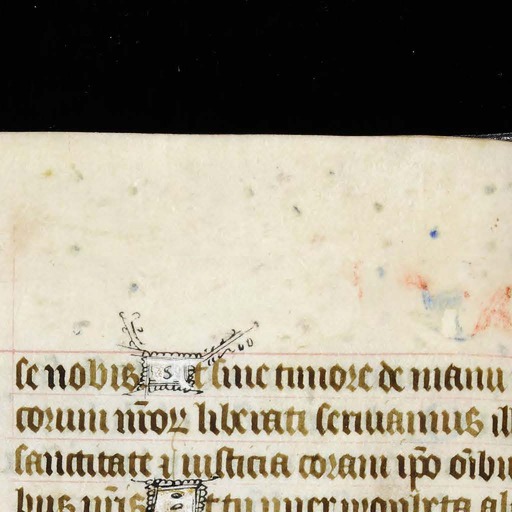 se nobis t sine timore de manu
corum nr̄oꝝ liberati seruiamus ill
sanctitate ⁊ iusticia coram ip̄o oīb
bus nr̄is t tu puer propheta al